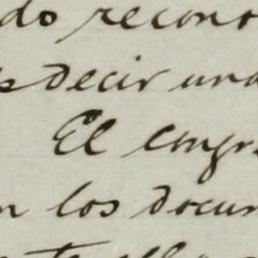 do recono
s decir una
El congr
n los docum